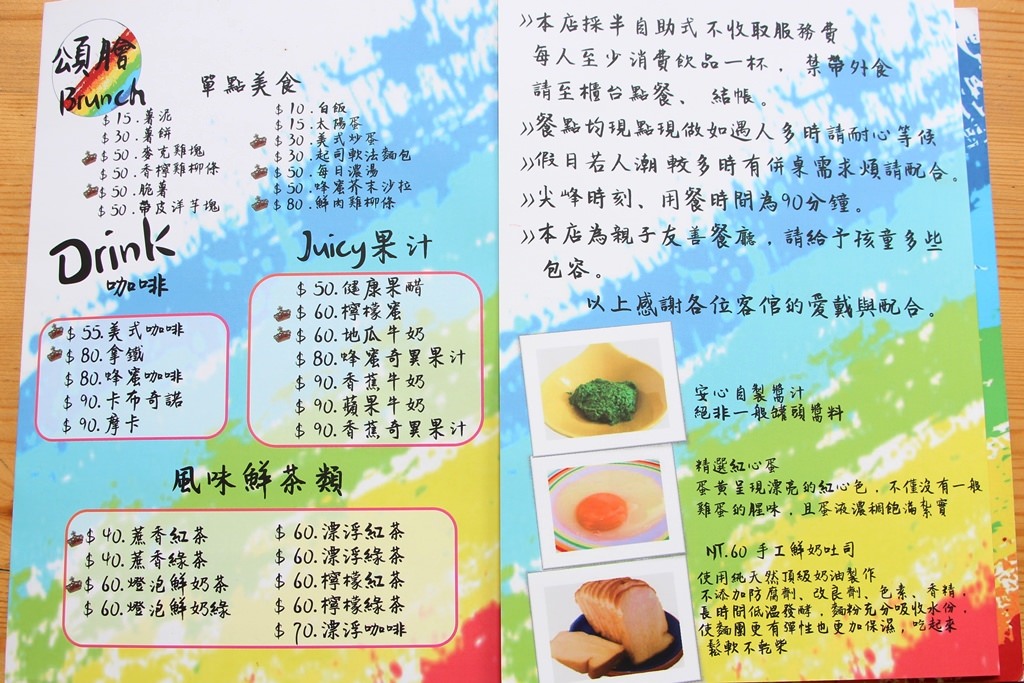 頌膾
Brunch
單點美食
$15.薯泥
$30.薯餅
$50.麥克雞塊
$50.香檸雞柳條
$50.脆薯
$50.帶皮洋芋塊
$10.白飯
$15.太陽蛋
$30.美式炒蛋
$30.起司軟法麵包
$50.每日濃湯
$50.蜂蜜芥末沙拉
$80.鮮肉雞柳條
Drink
咖啡
$55.美式咖啡
$80.拿鐵
$80.蜂蜜咖啡
$90.卡布奇諾
$90.摩卡
Juicy果汁
$50.健康果醋
$60.檸檬蜜
$60.地瓜牛奶
$80.蜂蜜奇異果汁
$90.香蕉牛奶
$90.蘋果牛奶
$90.香蕉奇異果汁
風味鮮茶類
$40.蔗香紅茶
$40.蔗香綠茶
$60.燈泡鮮奶茶
$60.燈泡鮮奶綠
$60.漂浮紅茶
$60.漂浮綠茶
$60.檸檬紅茶
$60.檸檬綠茶
$70.漂浮咖啡
»本店採半自助式不收取服務費
每人至少消費飲品一杯，禁帶外食
請至櫃台點餐、結帳。
»餐點均現點現做如遇人多時請耐心等候
»假日若人潮較多時有併桌需求煩請配合。
»尖峰時刻、用餐時間為90分鐘。
»本店為親子友善餐廳，請給予孩童多些
包容。
以上感謝各位客倌的愛戴與配合。
安心自製醬汁
絕非一般罐頭醬料
精選紅心蛋
蛋黃呈現漂亮的紅心色，不僅沒有一般
雞蛋的腥味，且蛋液濃稠飽滿紮實
NT.60 手工鮮奶吐司
使用純天然頂級奶油製作
不添加防腐劑、改良劑、色素、香精，
長時間低溫發酵，麵粉充分吸收水份，
使麵團更有彈性也更加保濕，吃起來
鬆軟不乾柴